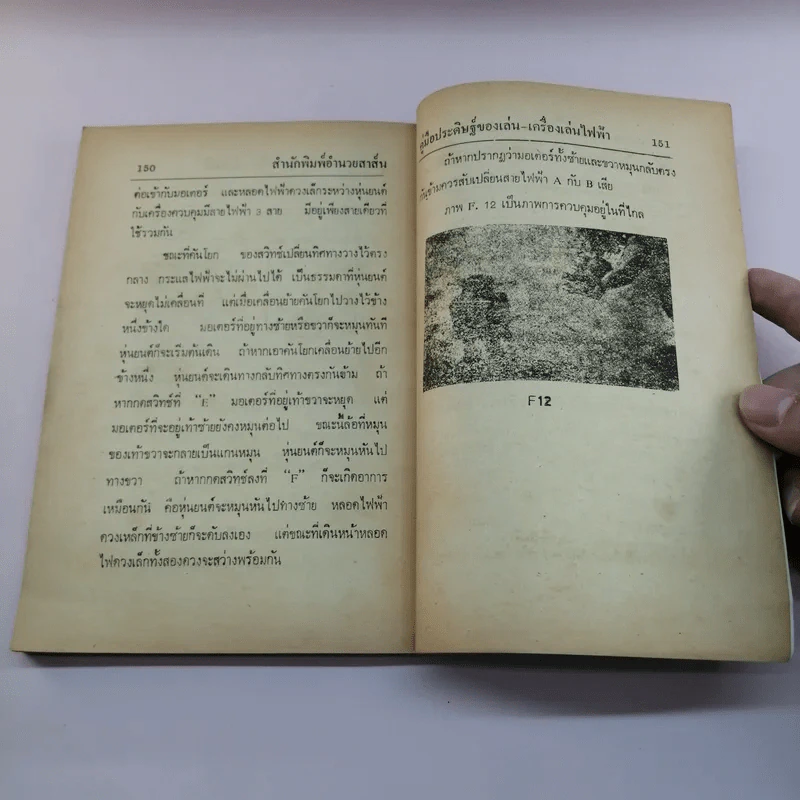 150 สำนักพิมพ์อำนวยสาส์น
ต่อเข้ากับมอเตอร์ และหลอดไฟฟ้าดวงเล็กระหว่างหุ่นยนต์
กับเครื่องควบคุมมีสายไฟฟ้า 3 สาย มีอยู่เพียงสายเดียวที่
ใช้รวมกัน
ขณะที่คันโยก ของสวิทช์เปลี่ยนทิศทางวางไว้ตรง
กลาง กระแสไฟฟ้าจะไม่ผ่านไปได้ เป็นธรรมดาที่หุ่นยนต์
จะหยุดไม่เคลื่อนที่ แต่เมื่อเคลื่อนย้ายคันโยกไปวางไว้ข้าง
หนึ่งข้างใด มอเตอร์ที่อยู่ทางซ้ายหรือขวาก็จะหมุนทันที
หุ่นยนต์ก็จะเริ่มต้นเดิน ถ้าหากเอาคันโยกเคลื่อนย้ายไปอีก
ข้างหนึ่ง หุ่นยนต์จะเดินทางกลับทิศทางตรงกันข้าม ถ้า
หากกดสวิทช์ที่ “E” มอเตอร์ที่อยู่เท้าขวาจะหยุด แต่
มอเตอร์ที่จะอยู่เท้าซ้ายยังคงหมุนต่อไป ขณะนี้ล้อที่หมุน
ของเท้าขวาจะกลายเป็นแกนหมุน หุ่นยนต์ก็จะหมุนหันไป
ทางขวา ถ้าหากกดสวิทช์ลงที่ “F” ก็จะเกิดอาการ
เหมือนกัน คือหุ่นยนต์จะหมุนหันไปทางซ้าย หลอดไฟฟ้า
ดวงเหล็กที่ข้างซ้ายก็จะดับลงเอง แต่ขณะที่เดินหน้าหลอด
ไฟดวงเล็กทั้งสองดวงจะสว่างพร้อมกัน
คู่มือประดิษฐ์ของเล่น-เครื่องเล่นไฟฟ้า 151
ถ้าหากปรากฏว่ามอเตอร์ทั้งซ้ายและขวาหมุนกลับตรง
กันข้ามควรสับเปลี่ยนสายไฟฟ้า A กับ B เสีย
ภาพ F. 12 เป็นภาพการควบคุมอยู่ในที่ไกล
F12